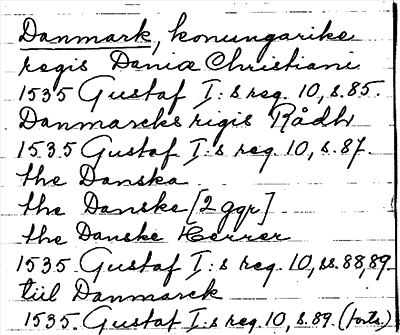 Danmark, konungarike
regis Daniæ Christiani
1535 Gustaf I:s reg. 10, s. 85.
Danmarcks rigis Rådh
1535 Gustaf I:s reg. 10, s. 87.
the Danska
the Danske [2 ggr]
the Danske Herrer
1535 Gustaf I:s reg. 10, ss. 88, 89.
till Danmarck
1535. Gustaf I:s reg. 10, s. 89. (forts.)